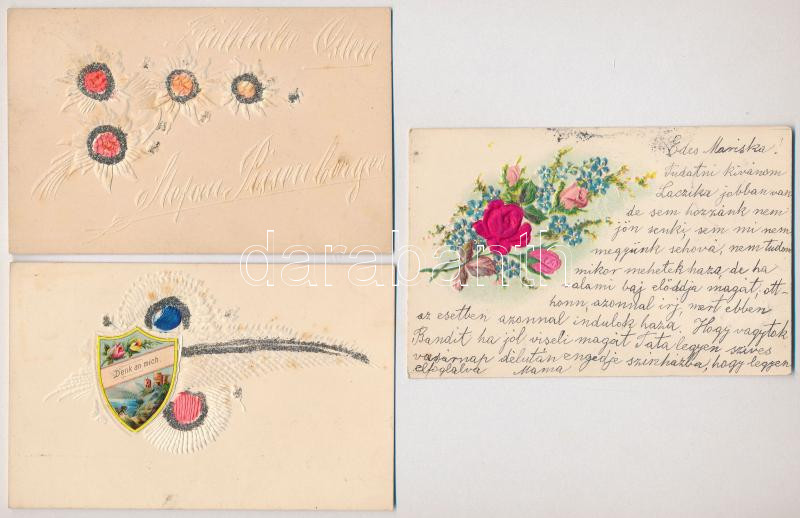 Fröhliche Ostern
Stefan
Denk an mich
Edes Mariska!
Tudatni kivánom
Laczika jobban van
de sem hozzánk nem
jön senki, sem mi nem
megyünk sehová, nem tudom
mikor mehetek haza, de ha
valami baj elöddja magát, ott-
honn, azonnal irj, mert ebben
az esetben azonnal indulok haza. Hogy vagytok
Bandit ha jól viseli magát Tata legyen szives
vasárnap délután engedje szinházba, hogy legyen
elfoglalva Mama
darabanth